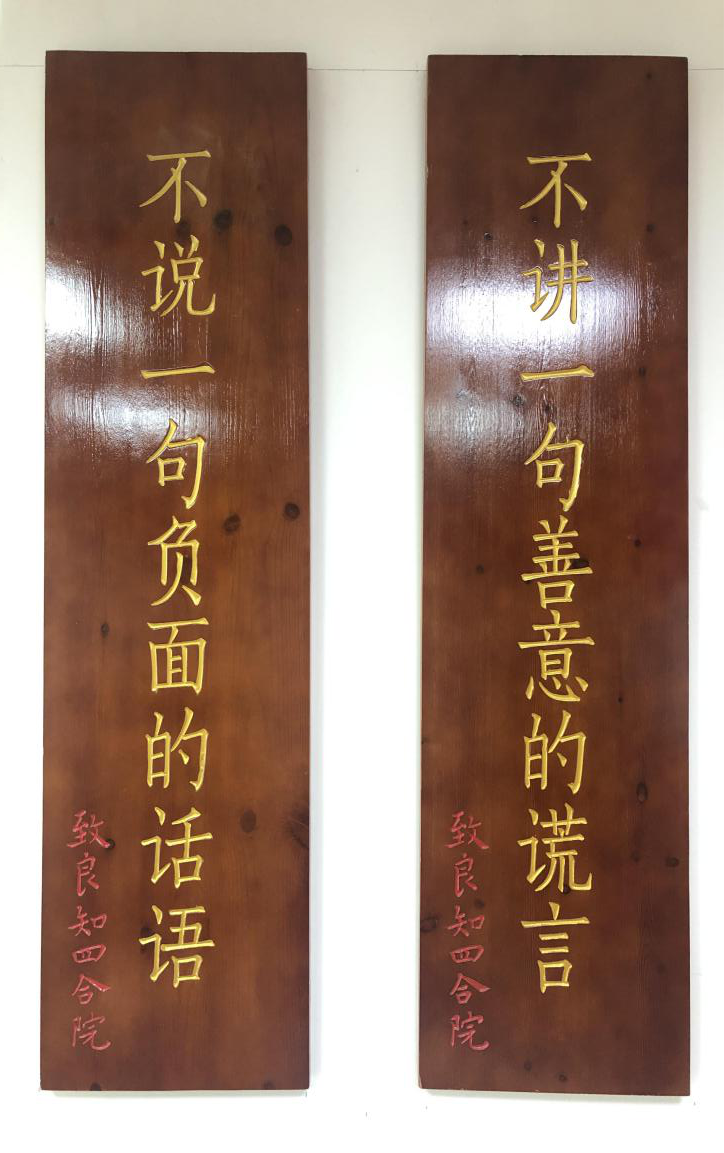 不讲一句善意的谎言
致良知四合院
不说一句负面的话语
致良知四合院